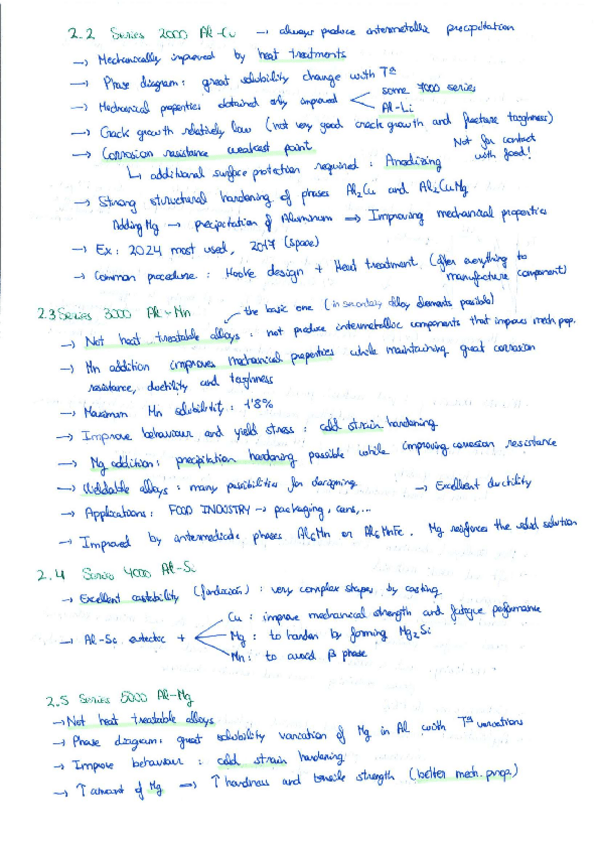 2.2 Series 2000 Al-Cu → always produce intermetallic precipitation
→ Mechanically improved by heat treatments
→ Phase diagram: great solubility change with Tª
→ Mechanical properties obtained only improved < some 7000 series
Al-Li
→ Crack growth relatively low (not very good crack growth and fracture toughness)
→ Corrosion resistance weakest point Not for contact with food!
↳ additional surface protection required: Anodizing
→ Strong structural hardening of phases Al2Cu and Al2CuMg
Adding Mg → precipitation of Aluminum ⇒ Improving mechanical properties
→ Ex: 2024 most used, 2017 (space)
→ Common procedure: design + Heat treatment (after everything to manufacture component)
2.3 Series 3000 Al-Mn the basic one (in secondary alloy elements possible)
→ Not heat treatable alloys: not produce intermetallic components that improves mech prop.
→ Mn addition improves mechanical properties while maintaining great corrosion
resistance, ductility and toughness
→ Maximum Mn solubility: 1'8%
→ Improve behaviour and yield stress: cold strain hardening
→ Mg addition: precipitation hardening possible while improving corrosion resistance
→ Weldable alloys: many possibilities for designing → Excellent ductility
→ Applications: FOOD INDUSTRY → packaging, cans,...
→ Improved by intermediate phases Al6Mn or Al6MnFe. Mg reinforces the solid solution
2.4 Series 4000 Al-Si
→ Excellent castability (fundición): very complex shapes by casting
Cu: improve mechanical strength and fatigue performance
→ Al-Si eutectic + < Mg: to harden by forming Mg2Si
Mn: to avoid β phase
2.5 Series 5000 Al-Mg
→ Not heat treatable alloys
→ Phase diagram: great solubility variation of Mg in Al with Tª variations
→ Improve behaviour: cold strain hardening
→ ↑ amount of Mg ⇒ ↑ hardness and tensile strength (better mech. prop.)